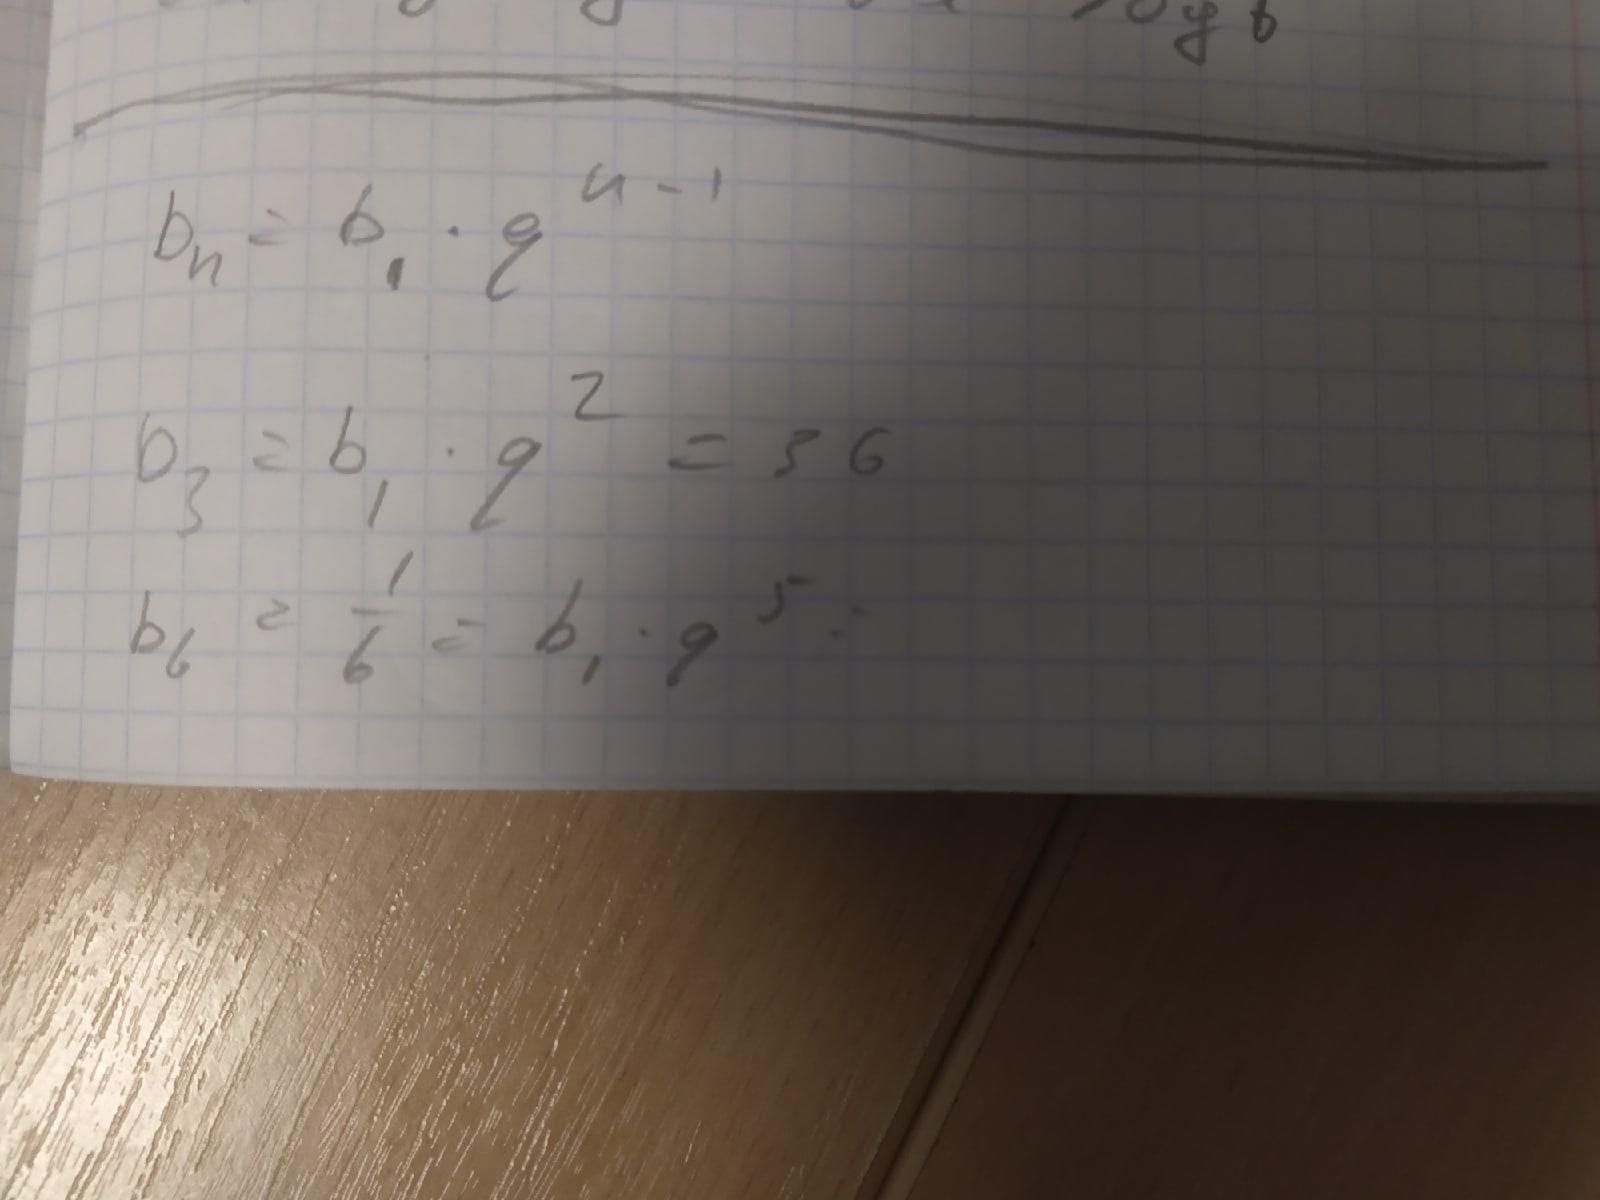 bₙ = b₁ · q^{n-1}
b₃ = b₁ · q² = 36
b₆ = 1/6 = b₁ · q⁵ =